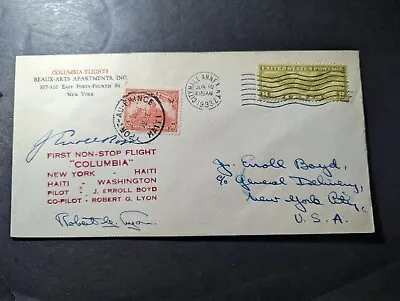 COLUMBIA FLIGHTS
BEAUX-ARTS APARTMENTS, INC.
307-310 EAST FORTY-FOURTH ST.
NEW YORK
PORT-AU-PRINCE
HAITI
CITY HALL ANNEX, N.Y.
JUN 10
1933
UNITED STATES POSTAGE
J Erroll Boyd
FIRST NON-STOP FLIGHT
"COLUMBIA"
NEW YORK - HAITI
HAITI - WASHINGTON
PILOT - J. ERROLL BOYD
CO-PILOT - ROBERT G. LYON
Robert G. Lyon
J. Erroll Boyd,
c/o General Delivery,
New York City,
U. S. A.